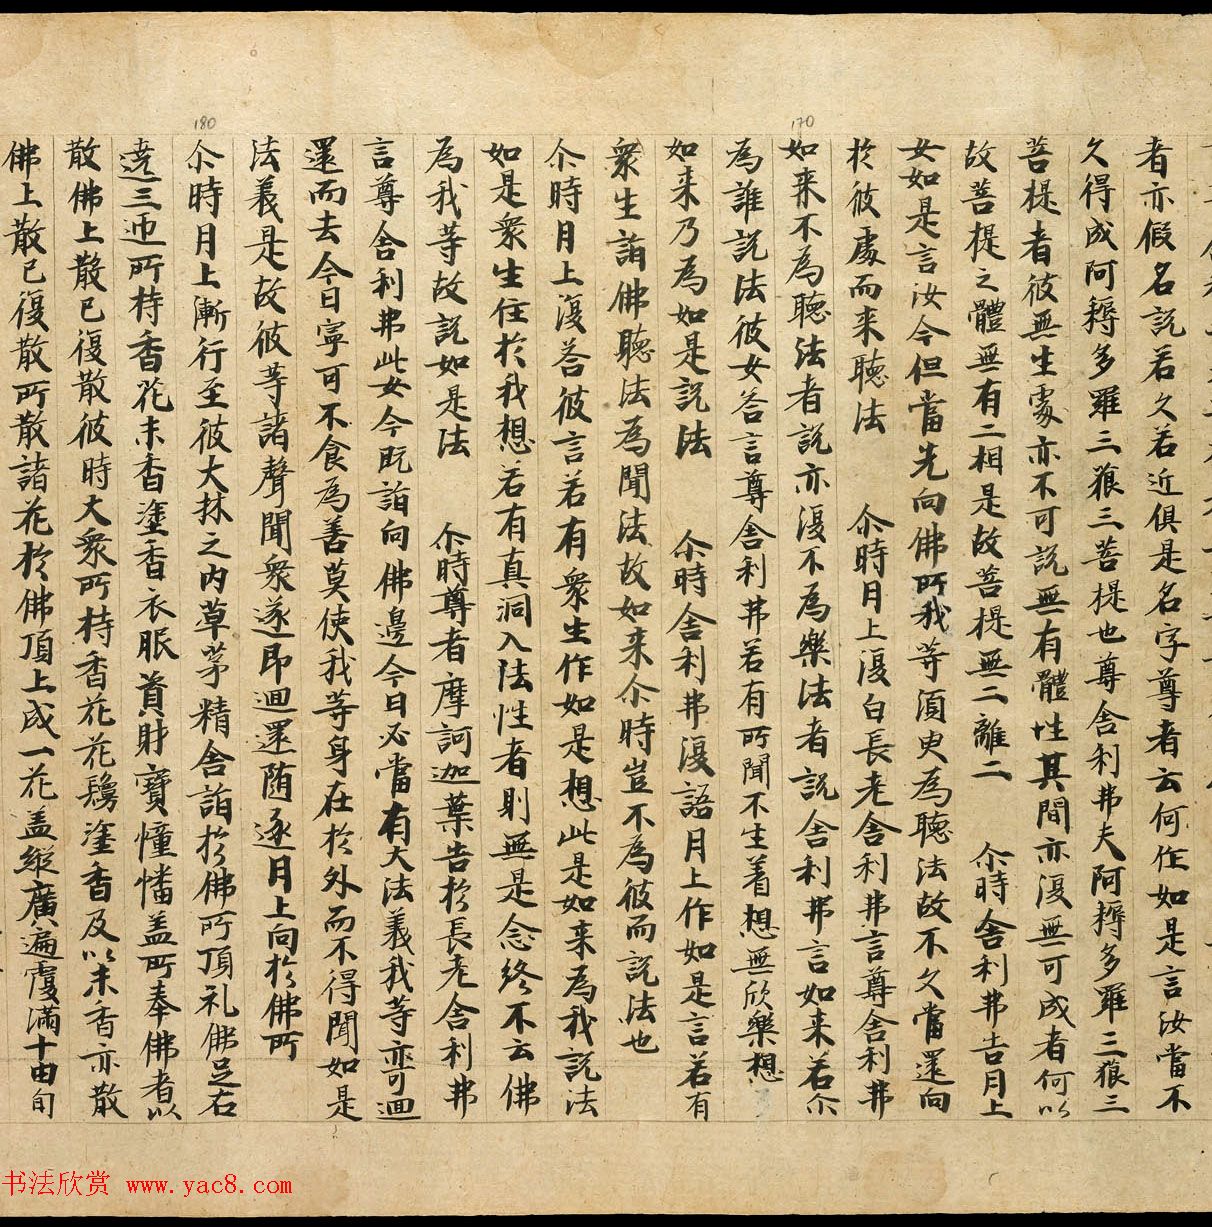 者亦假名説若久若近俱是名字尊者云何作如是言汝當不
久得成阿耨多羅三狼三菩提也尊舍利弗夫阿耨多羅三狼三
菩提者彼無生處亦不可説無有體性其間亦復無可成者何以
故菩提之體無有二相是故菩提無二離二 尒時舍利弗告月上
女如是言汝今但當先向佛所我等須臾為聽法故不久當還向
於彼處而来聽法 尒時月上復白長老舍利弗言尊舍利弗
如来不為聽法者説亦復不為樂法者説舍利弗言如来若尒
為誰説法彼女荅言尊舍利弗若有所聞不生着想無欣樂想
如来乃為如是説法 尒時舍利弗復語月上作如是言若有
衆生詣佛聽法為聞法故如来尒時豈不為彼而説法也
尒時月上復荅彼言若有衆生作如是想此是如来為我説法
如是衆生住於我想若有真洞入法性者則無是念終不云佛
為我等故説如是法 尒時尊者摩訶迦葉告於長老舍利弗
言尊舍利弗此女今既詣向佛邊今日必當有大法義我等亦可迴
還而去今日寧可不食為善莫使我等身在於外而不得聞如是
法義是故彼等諸聲聞衆遂即迴還随逐月上向於佛所
尒時月上漸行至彼大林之内草茅精舍詣於佛所頂礼佛足右
遶三迊所持香花末香塗香衣服資財寶幢幡盖所奉佛者以
散佛上散已復散彼時大衆所持香花花鬘塗香及以末香亦散
佛上散已復散所散諸花於佛頂上成一花盖縱廣遍覆滿十由旬
170
180
书法欣赏 www.yac8.com